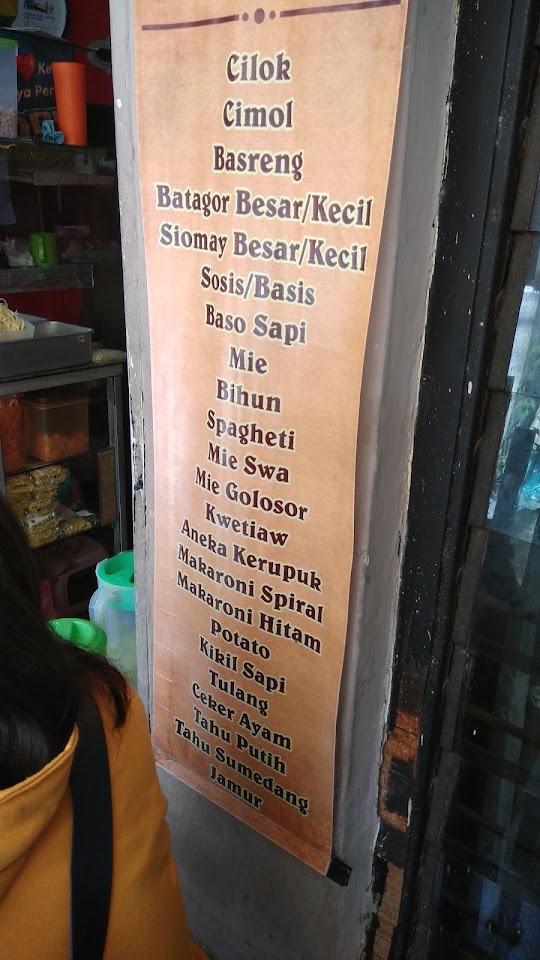 Cilok
Cimol
Basreng
Batagor Besar/Kecil
Siomay Besar/Kecil
Sosis/Basis
Baso Sapi
Mie
Bihun
Spagheti
Mie Swa
Mie Golosor
Kwetiaw
Aneka Kerupuk
Makaroni Spiral
Makaroni Hitam
Potato
Kikil Sapi
Tulang
Ceker Ayam
Tahu Putih
Tahu Sumedang
Jamur